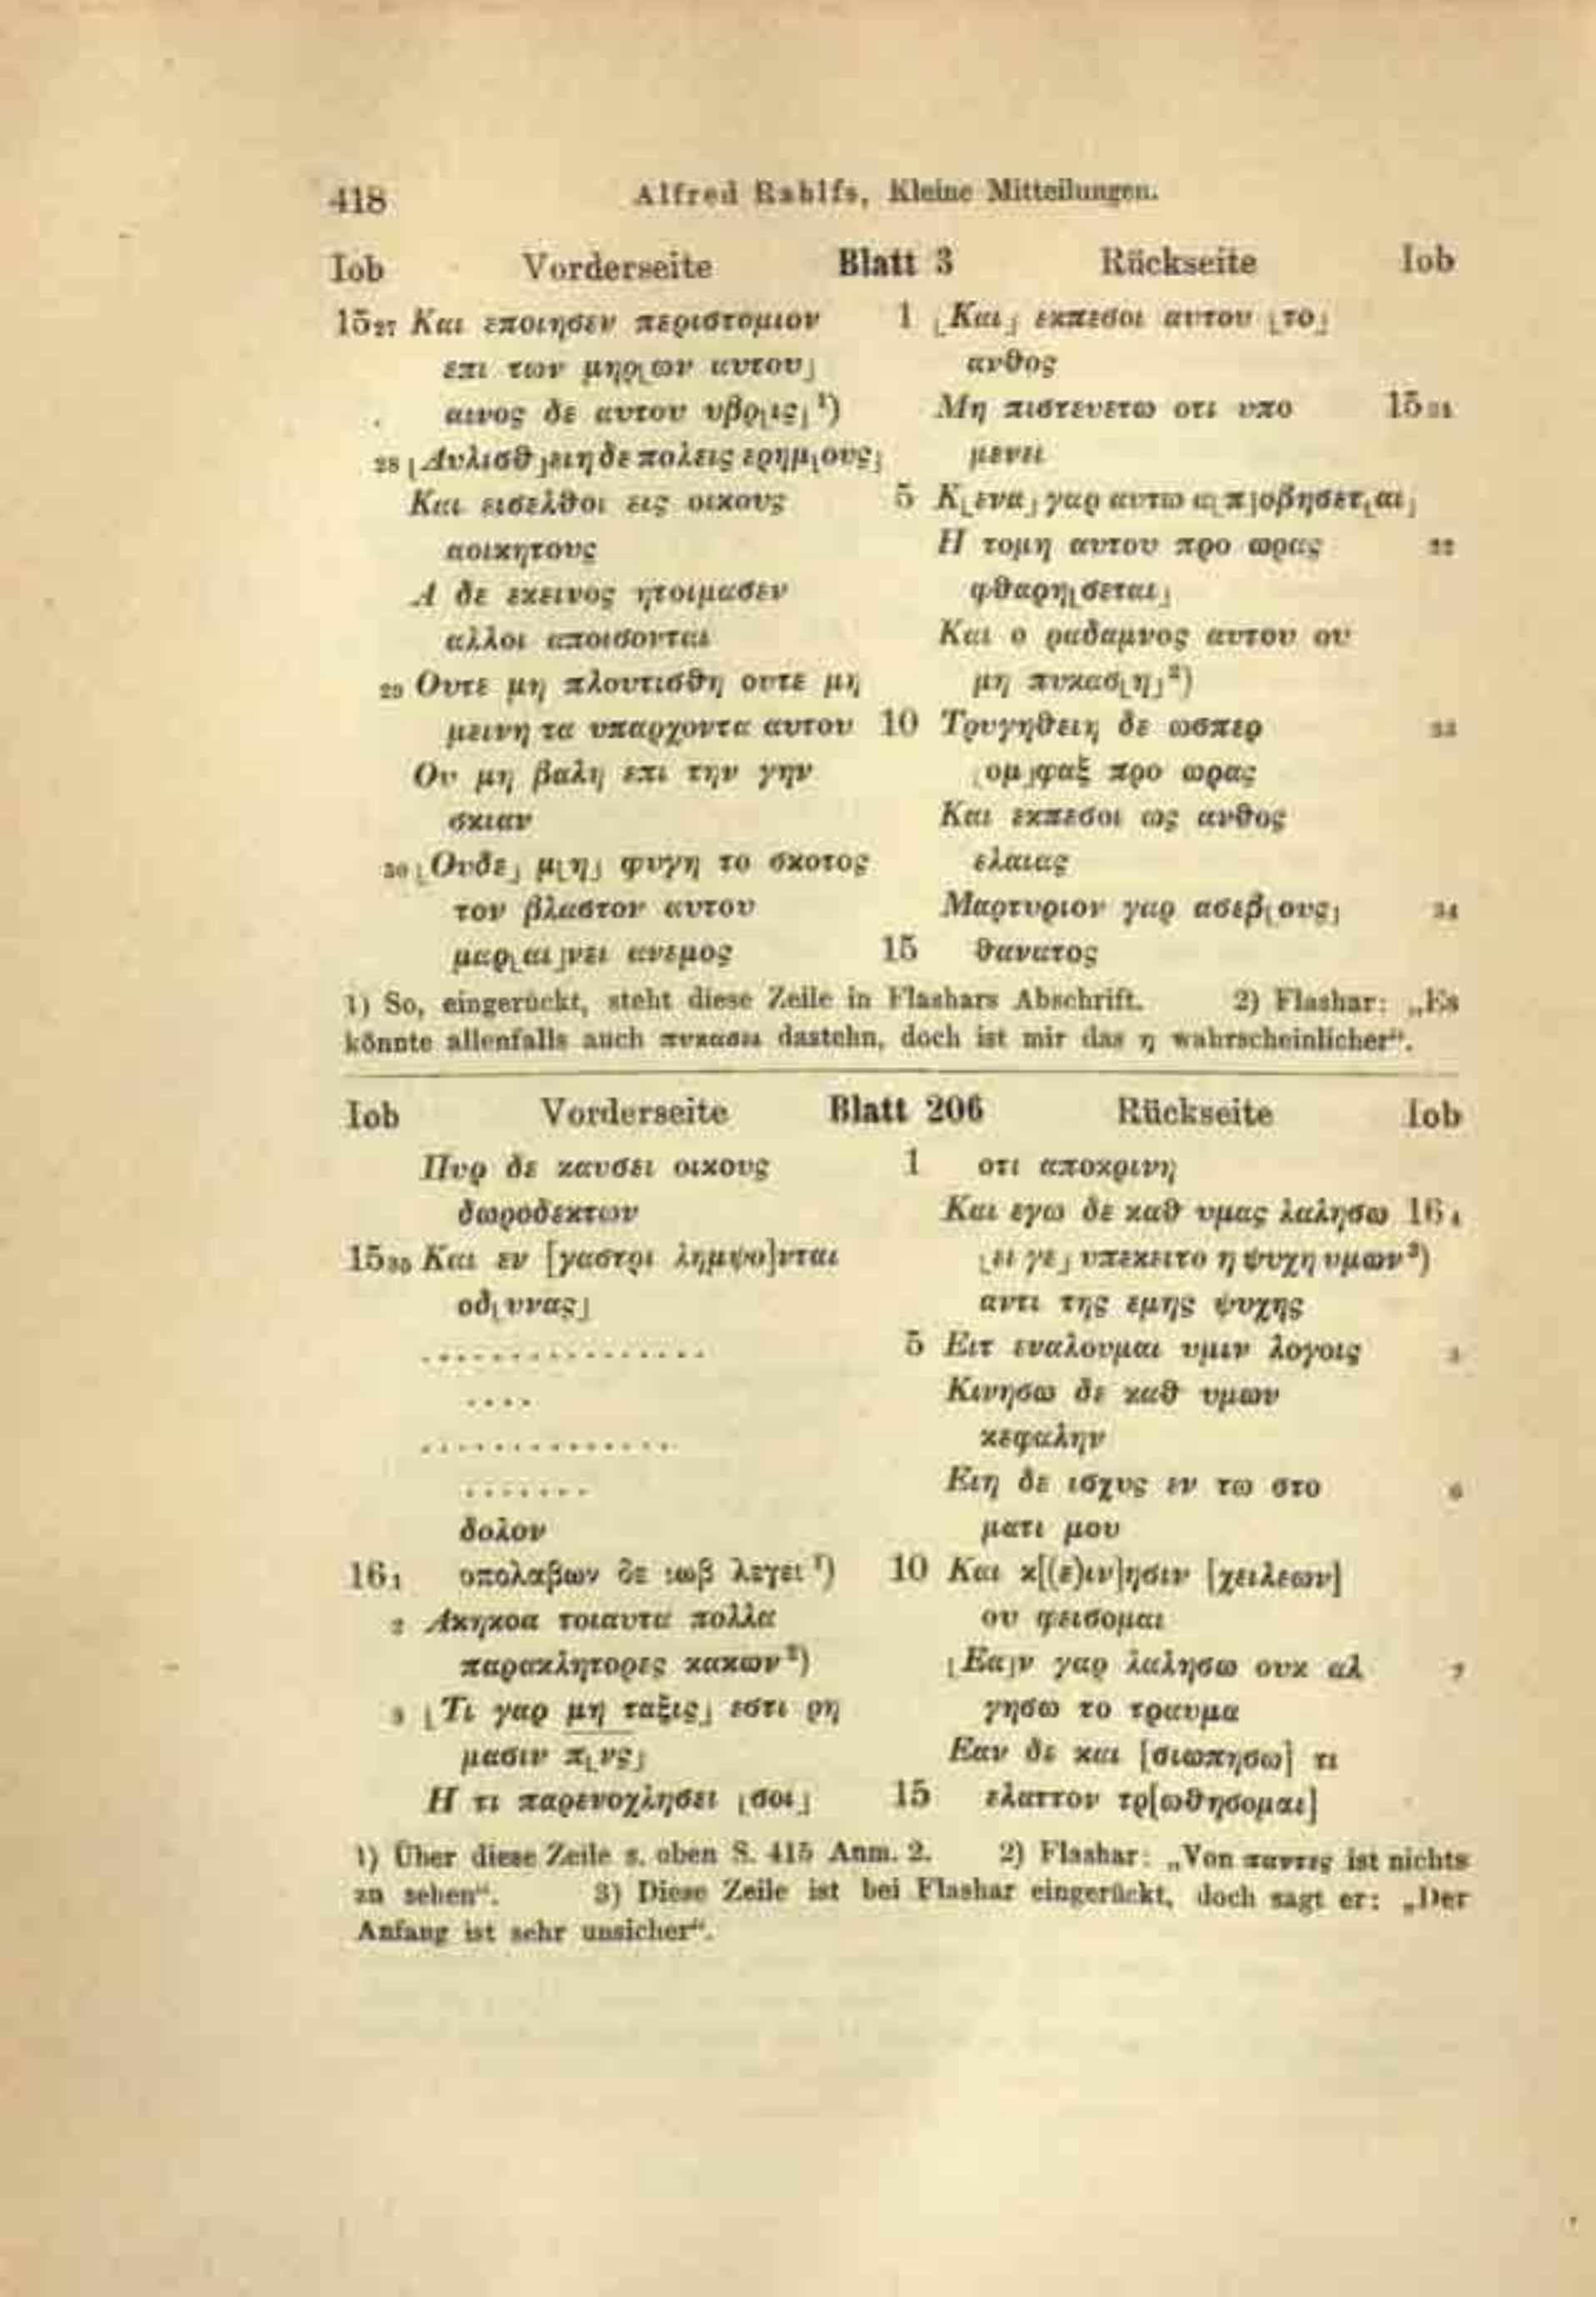 418
Alfred Rahlfs, Kleine Mitteilungen.
Iob Vorderseite Blatt 3 Rückseite Iob
15₂₇ Και εποιησεν περιστομιον
επι των μηρ⌊ων αυτου⌋
αινος δε αυτου υβρ⌊ις⌋¹)
₂₈ ⌊Αυλισθ⌋ειη δε πολεις ερημ⌊ους⌋
Και εισελθοι εις οικους
αοικητους
Α δε εκεινος ητοιμασεν
αλλοι αποισονται
₂₉ Ουτε μη πλουτισθη ουτε μη
μεινη τα υπαρχοντα αυτου
Ου μη βαλη επι την γην
σκιαν
₃₀ ⌊Ουδε⌋ μ⌊η⌋ φυγη το σκοτος
τον βλαστον αυτου
μαρ⌊αι⌋νει ανεμος
1 ⌊Και⌋ εκπεσοι αυτου ⌊το⌋
ανθος
Μη πιστευετω οτι υπο 15₃₁
μενει
5 Κ⌊ενα⌋ γαρ αυτω α⌊π⌋οβησετ⌊αι⌋
Η τομη αυτου προ ωρας ₃₂
φθαρη⌊σεται⌋
Και ο ραδαμνος αυτου ου
μη πυκασ⌊η⌋²)
10 Τρυγηθειη δε ωσπερ ₃₃
⌊ομ⌋φαξ προ ωρας
Και εκπεσοι ως ανθος
ελαιας
Μαρτυριον γαρ ασεβ⌊ους⌋ ₃₄
15 θανατος
1) So, eingerückt, steht diese Zeile in Flashars Abschrift. 2) Flashar: „Es
könnte allenfalls auch πυκασει dastehn, doch ist mir das η wahrscheinlicher“.
Iob Vorderseite Blatt 206 Rückseite Iob
Πυρ δε καυσει οικους
δωροδεκτων
15₃₅ Και εν [γαστρι λημψο]νται
οδ⌊υνας⌋
. . . . . . . . . . . . . . . .
. . . .
. . . . . . . . . . . . . .
. . . . . . .
δολον
16₁ υπολαβων δε ιωβ λεγει¹)
₂ Ακηκοα τοιαυτα πολλα
παρακλητορες κακων²)
₃ ⌊Τι γαρ μη ταξις⌋ εστι ρη
μασιν π⌊νς⌋
Η τι παρενοχλησει ⌊σοι⌋
1 οτι αποκρινη
Και εγω δε καθ υμας λαλησω 16₄
⌊ει γε⌋ υπεκειτο η ψυχη υμων³)
αντι της εμης ψυχης
5 Ειτ εναλουμαι υμιν λογοις
Κινησω δε καθ υμων
κεφαλην
Ειη δε ισχυς εν τω στο ₆
ματι μου
10 Και κ[(ε)ιν]ησιν [χειλεων]
ου φεισομαι
⌊Εα⌋ν γαρ λαλησω ουκ αλ ₇
γησω το τραυμα
Εαν δε και [σιωπησω] τι
15 ελαττον τρ[ωθησομαι]
1) Über diese Zeile s. oben S. 415 Anm. 2. 2) Flashar: „Von παντες ist nichts
zu sehen“. 3) Diese Zeile ist bei Flashar eingerückt, doch sagt er: „Der
Anfang ist sehr unsicher“.